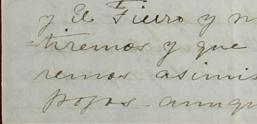 y El Fierro y n
tiremos y que
remos asimis
pojos - aunqu